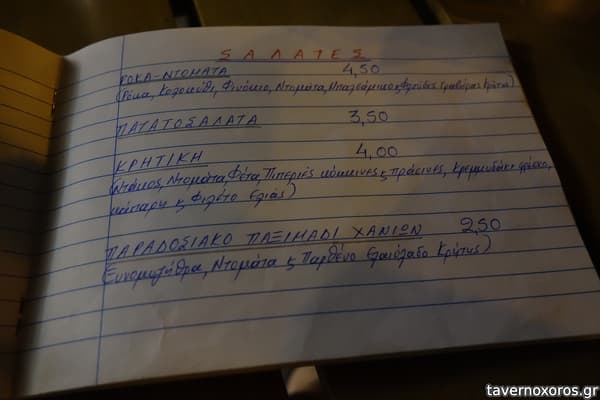 SΑΛΑΤΕS
ΡΟΚΑ-ΝΤΟΜΑΤΑ 4,50
(Ρόκα, Κολοκύθι, Φινόκιο, Ντομάτα, Μπαλσάμικο, Φλούδες Γραβιέρας Κρήτης)
ΠΑΤΑΤΟΣΑΛΑΤΑ 3,50
ΚΡΗΤΙΚΗ 4,00
(Ντάκος, Ντομάτα, Φέτα, Πιπεριές κόκκινες κ πράσινες, Κρεμμυδάκι φρέσκο,
κάπαρη κ Φιλέτο Ελιάς)
ΠΑΡΑΔΟΣΙΑΚΟ ΠΑΞΙΜΑΔΙ ΧΑΝΙΩΝ 2,50
(Ξυνομυζήθρα, Ντομάτα κ Παρθένο Ελαιόλαδο Κρήτης)
tavernoxoros.gr